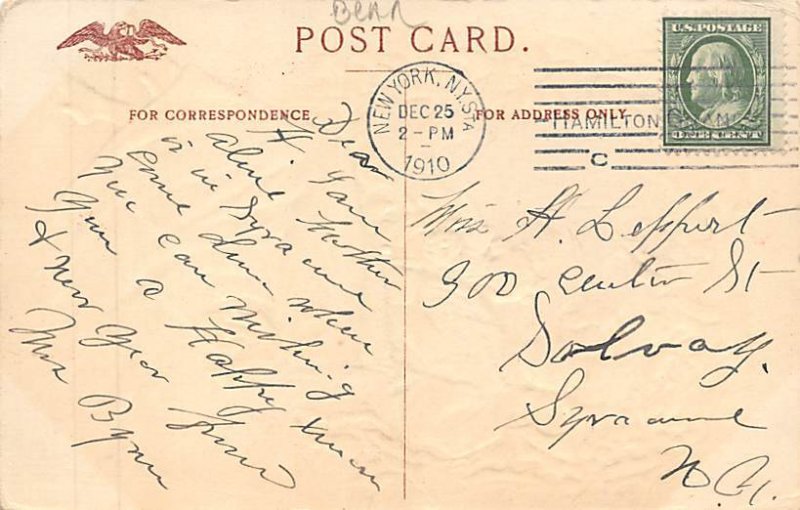 Bear
POST CARD.
FOR CORRESPONDENCE
FOR ADDRESS ONLY
NEW YORK, N.Y. STA
DEC 25
2 - PM
1910
HAMILTON GRANGE
C
U.S. POSTAGE
ONE CENT
Dear
H. I am
alone Mother
is in Syracuse
come down when
you can wishing
you a Happy Xmas
& New Year yours
Mrs Byrne
Miss H. Leppert
300 Center St
Solvay.
Syracuse
N. Y.